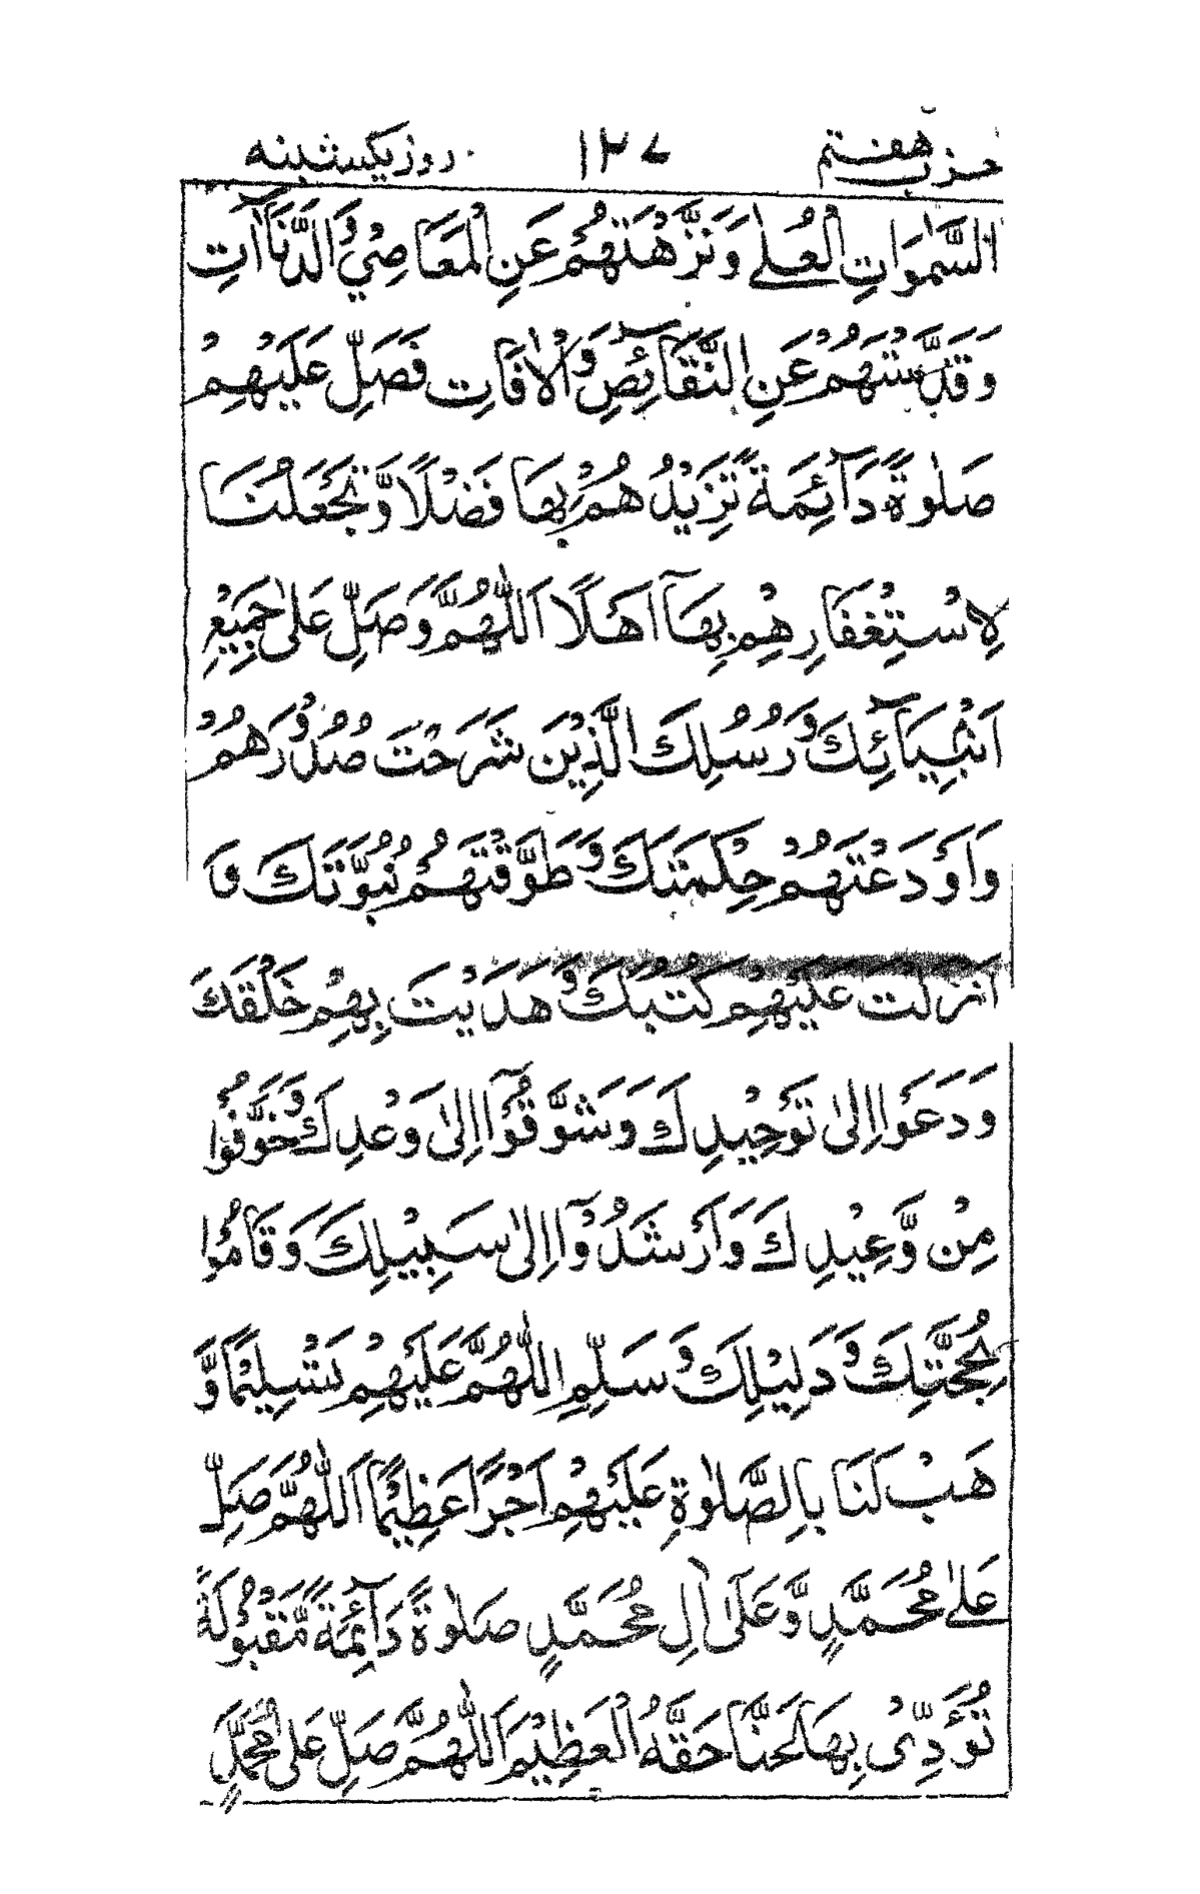 حزب هفتم ١٢٧ روز یکشنبه
السَّمٰوَاتِ الْعُلٰے وَنَزَّهْتَهُمْ عَنِ الْمَعَاصِيْ وَالدَّنَآاٰتِ
وَقَدَّسْتَهُمْ عَنِ النَّقَآئِصِ وَالْاٰفَاتِ فَصَلِّ عَلَيْهِمْ
صَلٰوةً دَآئِمَةً تَزِيْدُهُمْ بِهَا فَضْلًا وَّتَجْعَلُنَا
لِاسْتِغْفَارِهِمْ بِهَآ اَهْلًا اَللّٰهُمَّ وَصَلِّ عَلٰى جَمِيْعِ
اَنْبِيَآئِكَ وَرُسُلِكَ الَّذِيْنَ شَرَحْتَ صُدُوْرَهُمْ
وَاَوْدَعْتَهُمْ حِكْمَتَكَ وَطَوَّقْتَهُمْ نُبُوَّتَكَ وَ
اَنْزَلْتَ عَلَيْهِمْ كُتُبَكَ وَهَدَيْتَ بِهِمْ خَلْقَكَ
وَدَعَوْا اِلٰى تَوْحِيْدِكَ وَشَوَّقُوْٓا اِلٰى وَعْدِكَ وَخَوَّفُوْا
مِنْ وَّعِيْدِكَ وَاَرْشَدُوْٓا اِلٰى سَبِيْلِكَ وَقَامُوْا
بِحُجَّتِكَ وَدَلِيْلِكَ وَسَلِّمِ اللّٰهُمَّ عَلَيْهِمْ تَسْلِيْمًا وَّ
هَبْ لَنَا بِالصَّلٰوةِ عَلَيْهِمْ اَجْرًا عَظِيْمًا اَللّٰهُمَّ صَلِّ
عَلٰى مُحَمَّدٍ وَّعَلٰٓى اٰلِ مُحَمَّدٍ صَلٰوةً دَآئِمَةً مَّقْبُوْلَةً
تُؤَدِّىْ بِهَا عَنَّا حَقَّهُ الْعَظِيْمَ اَللّٰهُمَّ صَلِّ عَلٰى مُحَمَّدٍ